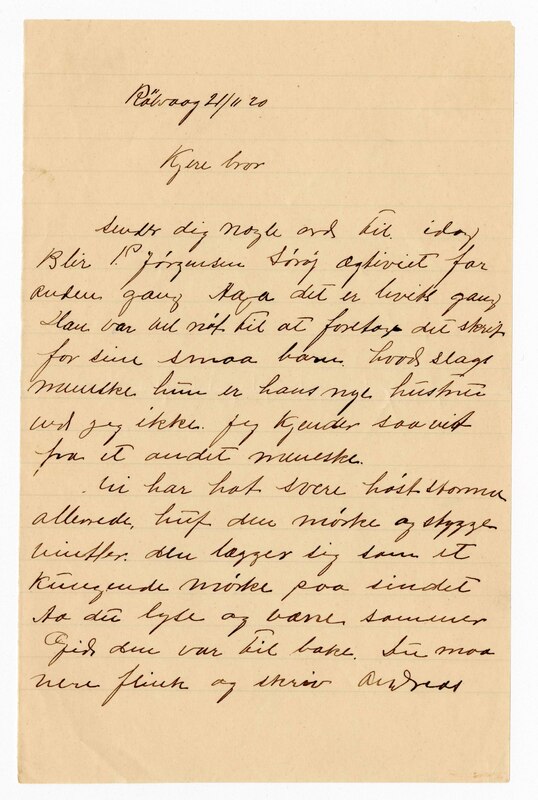 Rölvaag 21/11 20
Kjere bror
sender dig nogle ord til idag
Blir P Jørgensen Sørøj ægtiviet for
anden gang Aaja det er livets gang
Han var vel nøt til at foretage det skrit
for sine smaa barn. hvod slags
meneske hun er hans nye hustru
ved jeg ikke. jeg Kjender saavit
fra et andet meneske.
Vi har hat svere høststormer
allerede, huf den mørke og stygge
vintter. den lægger sig som et
Kuegende mørke paa sindet
Aa du lyse og varme sommer
Gid den var til bake. Du maa
vere flink og skriv Andreas